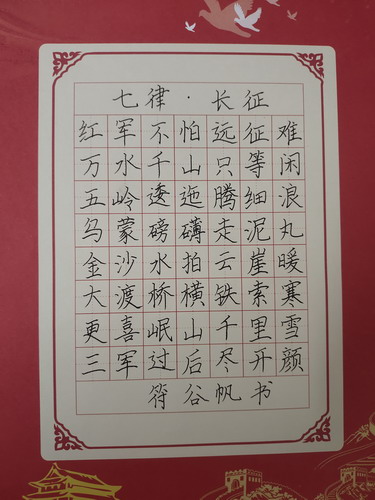 七律·长征
红军不怕远征难
万水千山只等闲
五岭逶迤腾细浪
乌蒙磅礴走泥丸
金沙水拍云崖暖
大渡桥横铁索寒
更喜岷山千里雪
三军过后尽开颜
符谷帆书